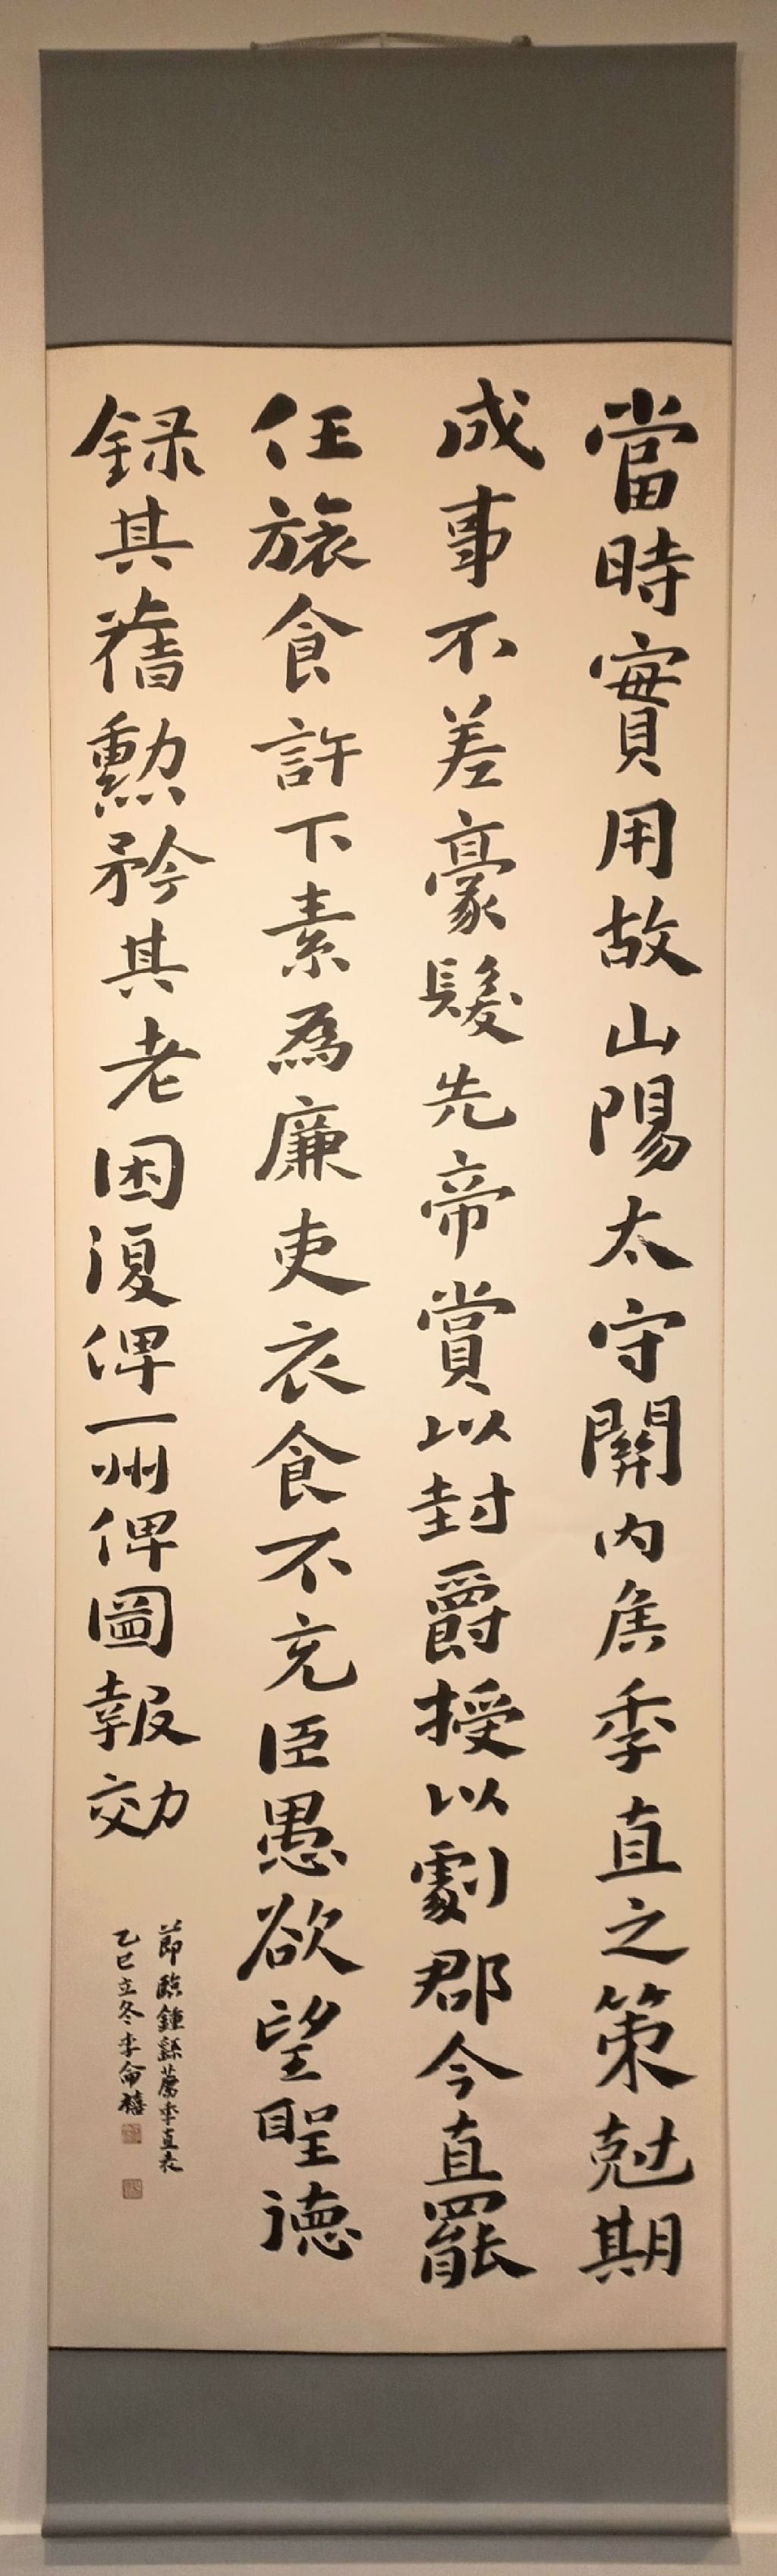 當時實用故山陽太守關內侯季直之策尅期
成事不差豪髮先帝賞以封爵授以劇郡今直罷
任旅食許下素為廉吏衣食不充臣愚欲望聖德
錄其舊勳矜其老困復俾一州俾圖報効
節臨鍾繇薦季直表
乙巳立冬李命禧